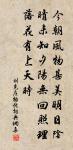 今朝風物甚美明日陰
晴未知夕陽無回照理
落花有上天時